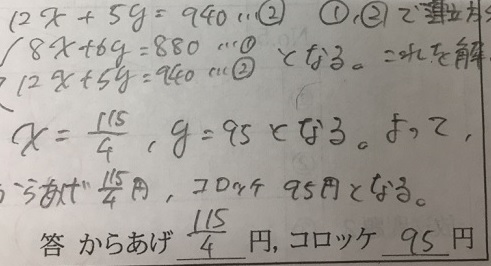 12x + 5y = 940 …② ①,②で連立方
8x+6y=880 …①
12x+5y=940 …② となる。これを解
x = 115/4 , y = 95 となる。よって,
らあげ 115/4 円, コロッケ 95円となる。
答 からあげ 115/4 円, コロッケ 95 円